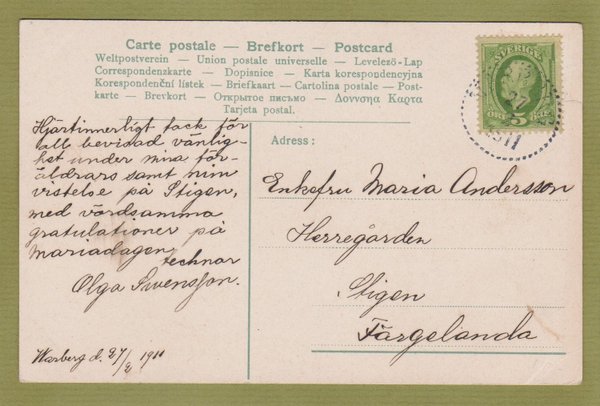 Carte postale — Brefkort — Postcard
Weltpostverein — Union postale universelle — Levelező-Lap
Correspondenzkarte — Dopisnice — Karta korespondencyjna
Korespondenční lístek — Briefkaart — Cartolina postale — Post-
karte — Brevkort — Открытое письмо — Δοννσηα Καρτα
Tarjeta postal.
SVERIGE
5
ÖRE
Hjärtinnerligt tack för
all bevisad vänlig-
het under mina för-
äldrars samt min
vistelse på Stigen,
med vördsamma
gratulationer på
Mariadagen
tecknar
Olga Svensson.
Warberg d. 27/2 1911
Adress:
Enkefru Maria Andersson
Herregården
Stigen
Färgelanda